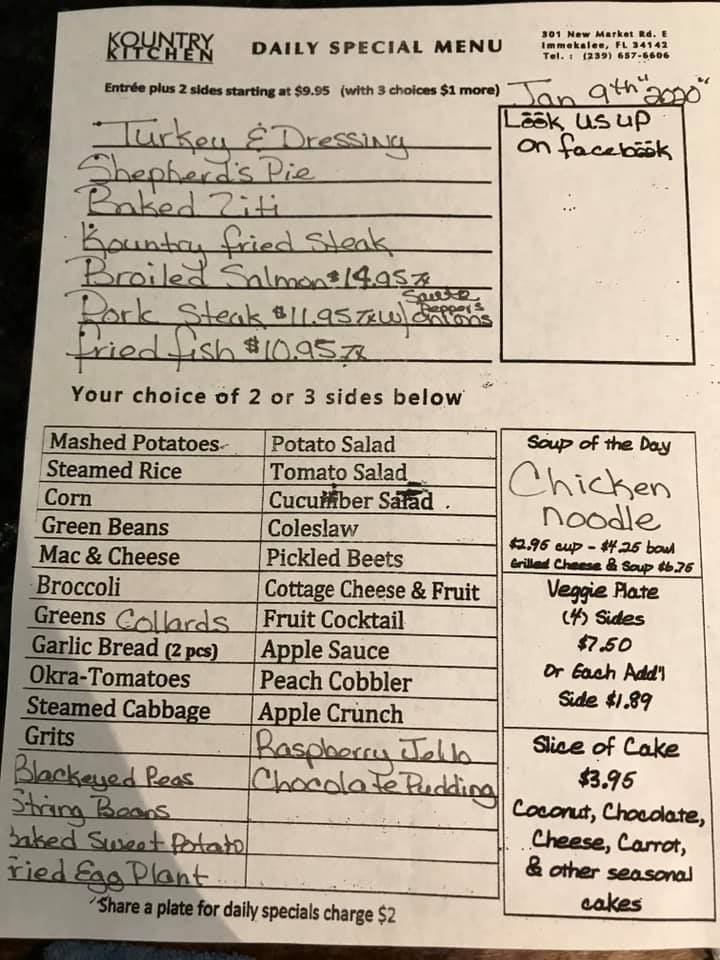 KOUNTRY
KITCHEN
DAILY SPECIAL MENU
301 New Market Rd. E
Immokalee, FL 34142
Tel. : (239) 657-6606
Entrée plus 2 sides starting at $9.95 (with 3 choices $1 more)
Jan 9th 2020
Turkey & Dressing
Shepherd's Pie
Baked Ziti
Kountry fried Steak
Broiled Salmon $14.95
Pork Steak $11.95 w/ Saute Peppers Onions
fried fish $10.95
Look us up
on facebook
Your choice of 2 or 3 sides below
Mashed Potatoes Potato Salad
Steamed Rice Tomato Salad
Corn Cucumber Salad
Green Beans Coleslaw
Mac & Cheese Pickled Beets
Broccoli Cottage Cheese & Fruit
Greens Collards Fruit Cocktail
Garlic Bread (2 pcs) Apple Sauce
Okra-Tomatoes Peach Cobbler
Steamed Cabbage Apple Crunch
Grits Raspberry Jello
Blackeyed Peas Chocolate Pudding
String Beans
baked Sweet Potato
ried Egg Plant
Soup of the Day
Chicken
noodle
$2.95 cup - $4.25 bowl
Grilled Cheese & Soup $6.75
Veggie Plate
(4) Sides
$7.50
Or Each Add'l
Side $1.89
Slice of Cake
$3.95
Coconut, Chocolate,
Cheese, Carrot,
& other seasonal
cakes
Share a plate for daily specials charge $2